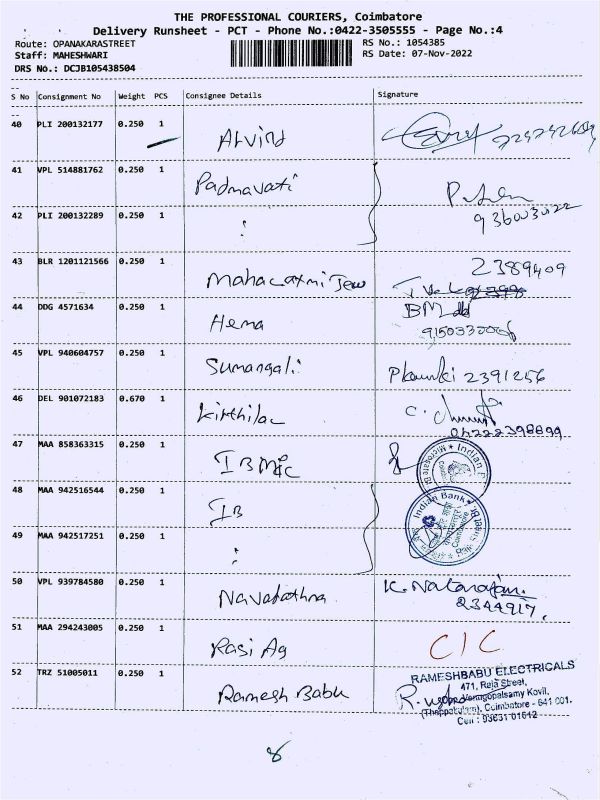 THE PROFESSIONAL COURIERS, Coimbatore
Delivery Runsheet - PCT - Phone No.:0422-3505555 - Page No.:4
Route: OPANAKARASTREET RS No.: 1054385
Staff: MAHESHWARI RS Date: 07-Nov-2022
DRS No.: DCJB105438504
S No Consignment No Weight PCS Consignee Details Signature
40 PLI 200132177 0.250 1 Arvind
41 VPL 514881762 0.250 1 Padmavati
42 PLI 200132289 0.250 1 :
43 BLR 1201121566 0.250 1 Mahalaxmi Jew 2389409
44 DDG 4571634 0.250 1 Hema BM
45 VPL 940604757 0.250 1 Sumangali 2391256
46 DEL 901072183 0.670 1 Kirthilal C.
04222398899
47 MAA 858363315 0.250 1 IB Mic
48 MAA 942516544 0.250 1 IB Indian Bank
49 MAA 942517251 0.250 1 :
50 VPL 939784580 0.250 1 Navarathna K. Natarajan.
2344917,
51 MAA 294243005 0.250 1 Rasi Ag CIC
52 TRZ 51005011 0.250 1 Ramesh Babu RAMESHBABU ELECTRICALS
471, Raja Street,
Venugopalsamy Kovil,
Coimbatore - 641 001.
Cell : 93631 01612
8